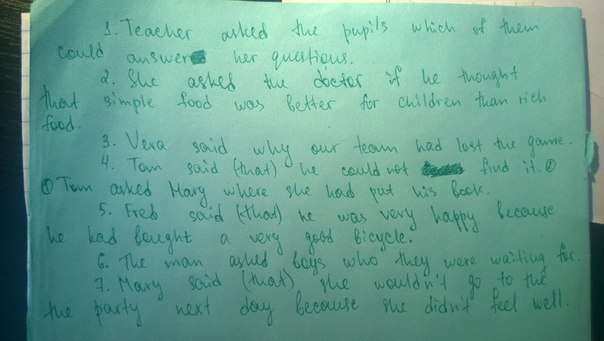 1. Teacher asked the pupils which of them
could answer her questions.
2. She asked the doctor if he thought
that simple food was better for children than rich
food.
3. Vera said why our team had lost the game.
4. Tom said (that) he could not find it.①
① Tom asked Mary where she had put his book.
5. Fred said (that) he was very happy because
he had bought a very good bicycle.
6. The man asked boys who they were waiting for.
7. Mary said (that) she wouldn't go to the
the party next day because she didn't feel well.